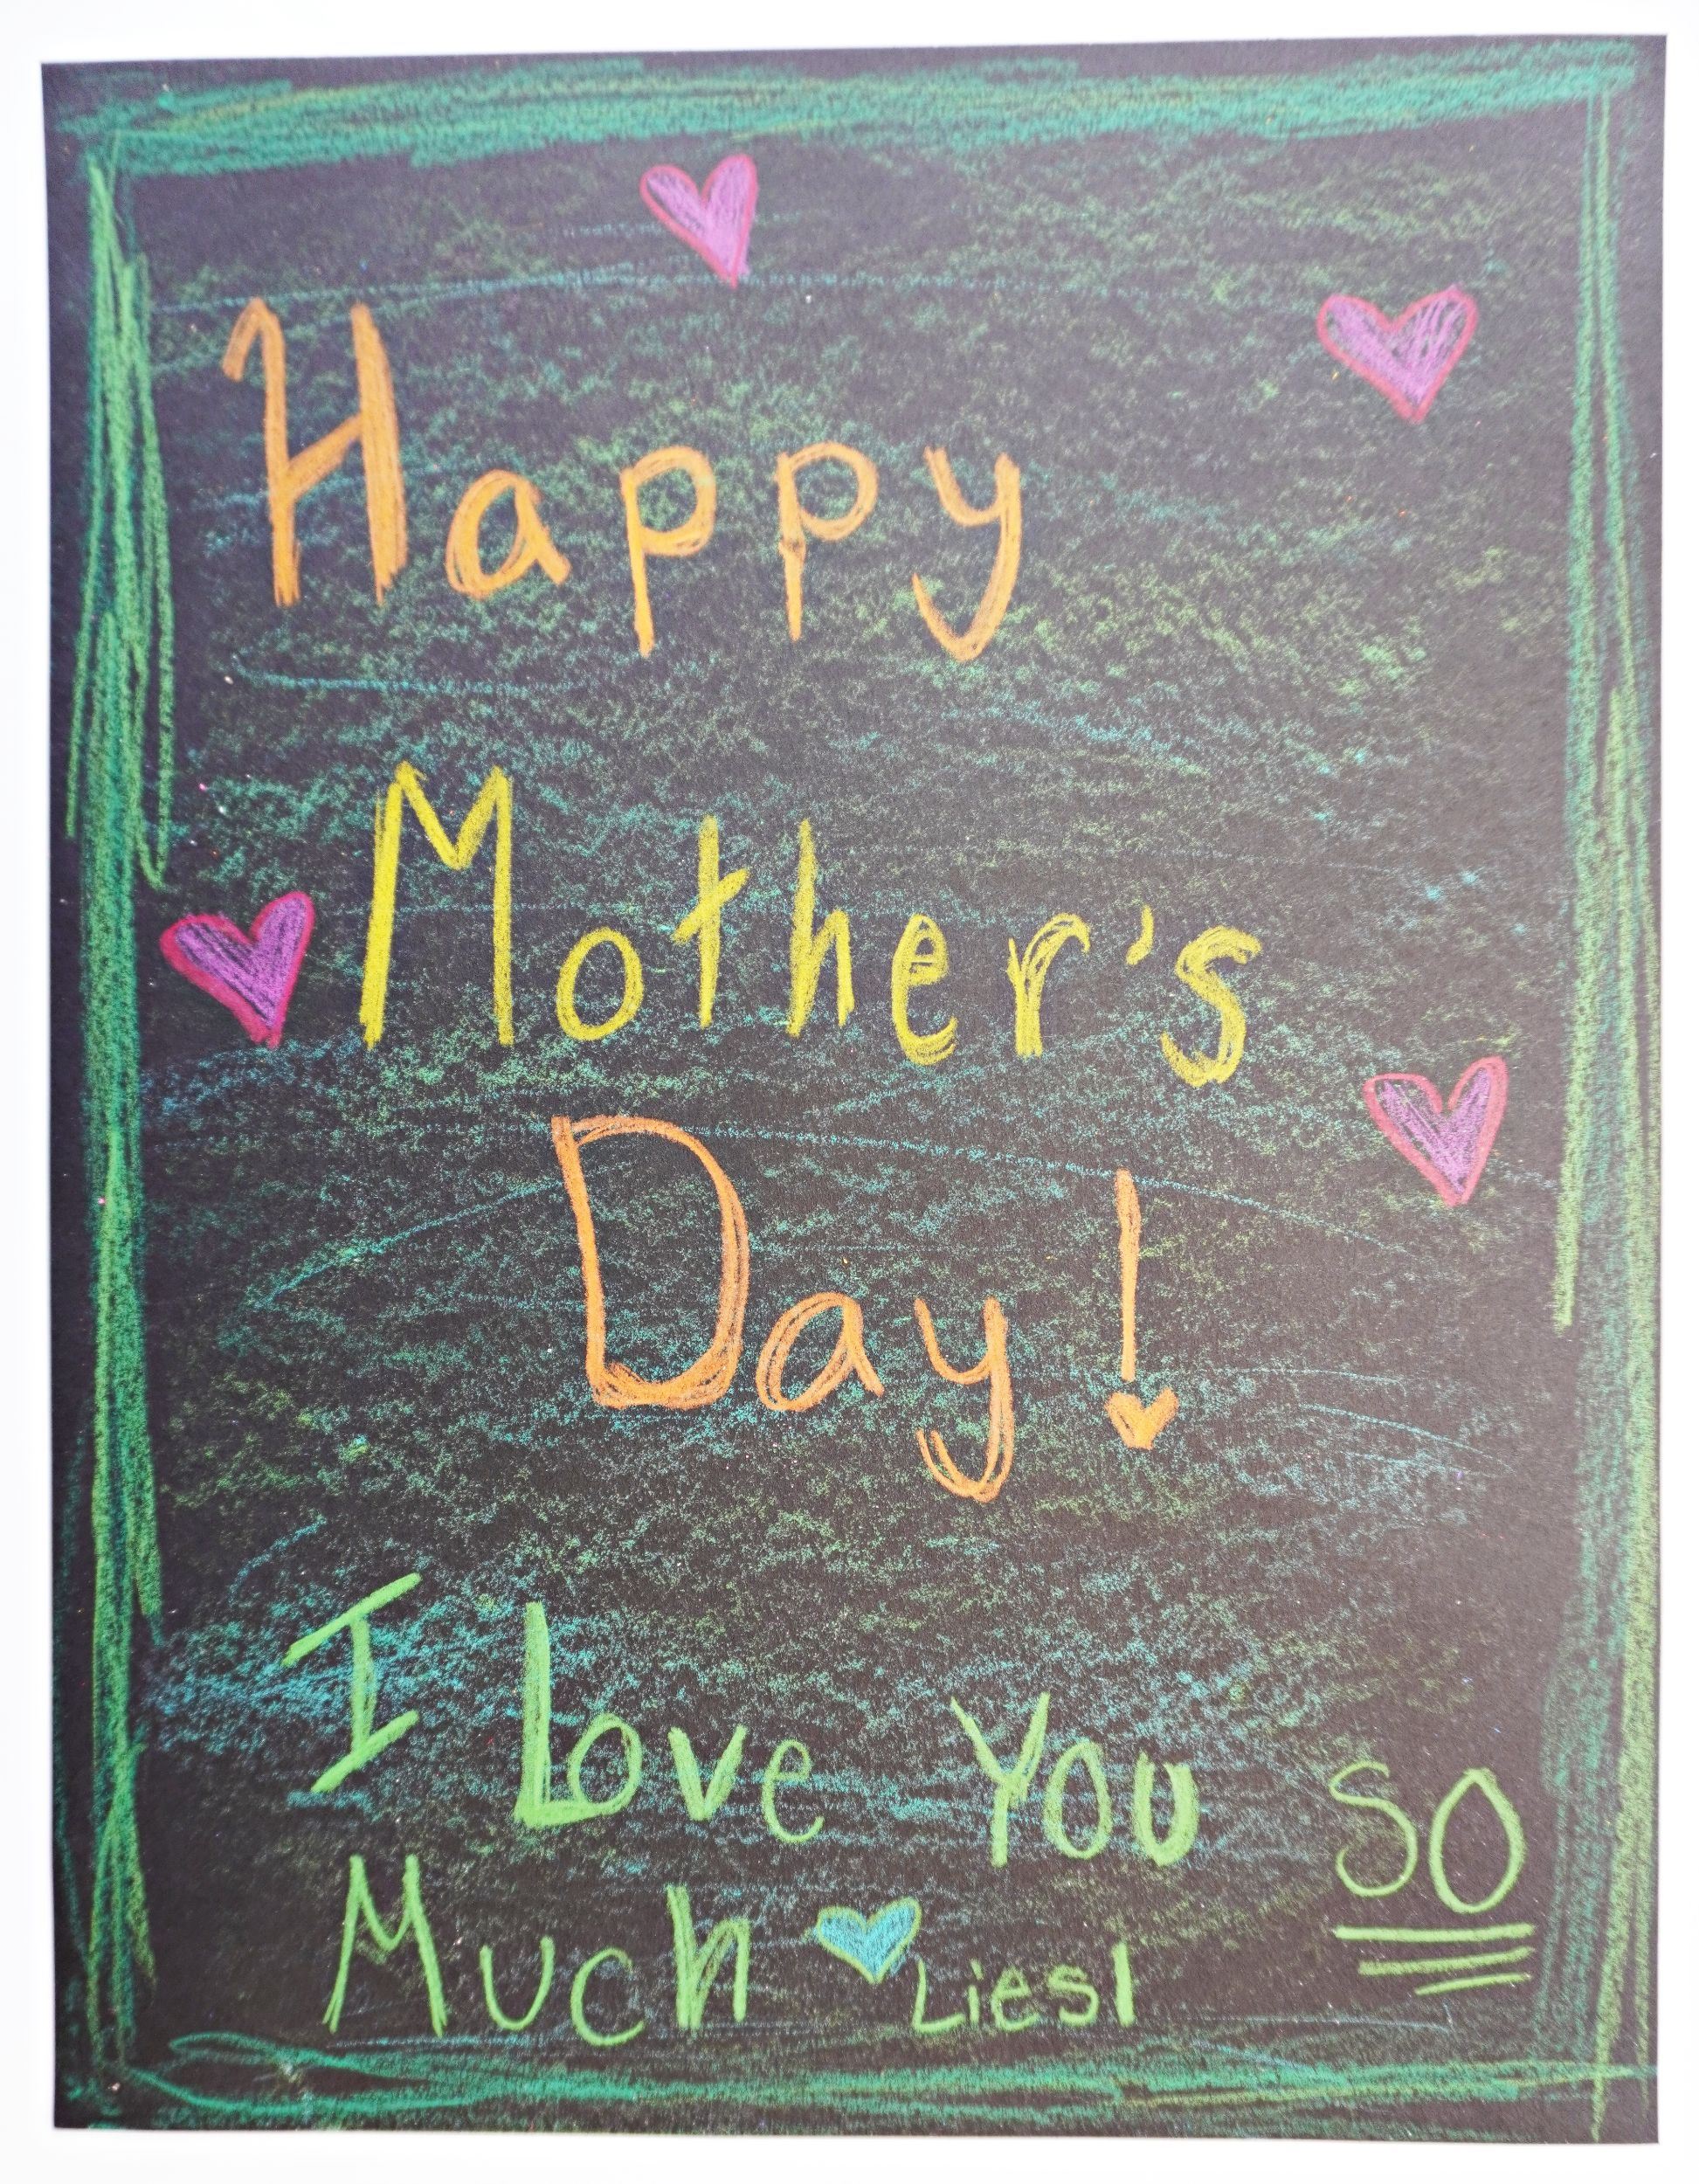 Happy
Mother's
Day!
I Love You so
Much Liesl